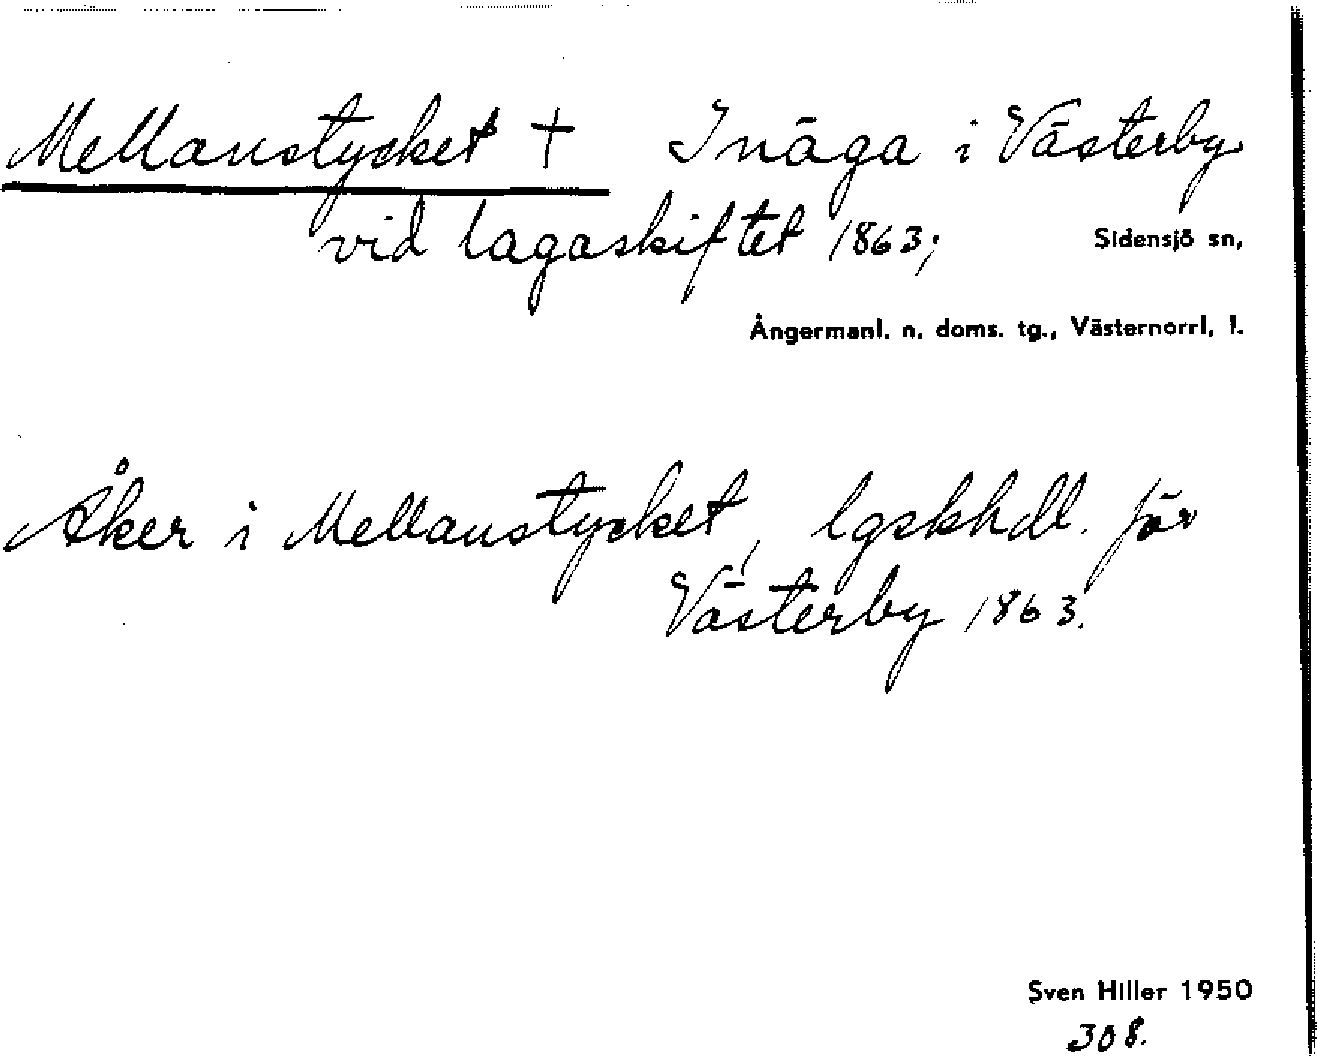 Mellanstycket † Inäga i Västerby
vid lagaskiftet 1863;
Sidensjö sn,
Ångermanl. n. doms. tg., Västernorrl. l.
Åker i Mellanstycket, lgskhdl. för
Västerby 1863.
Sven Hiller 1950
308.